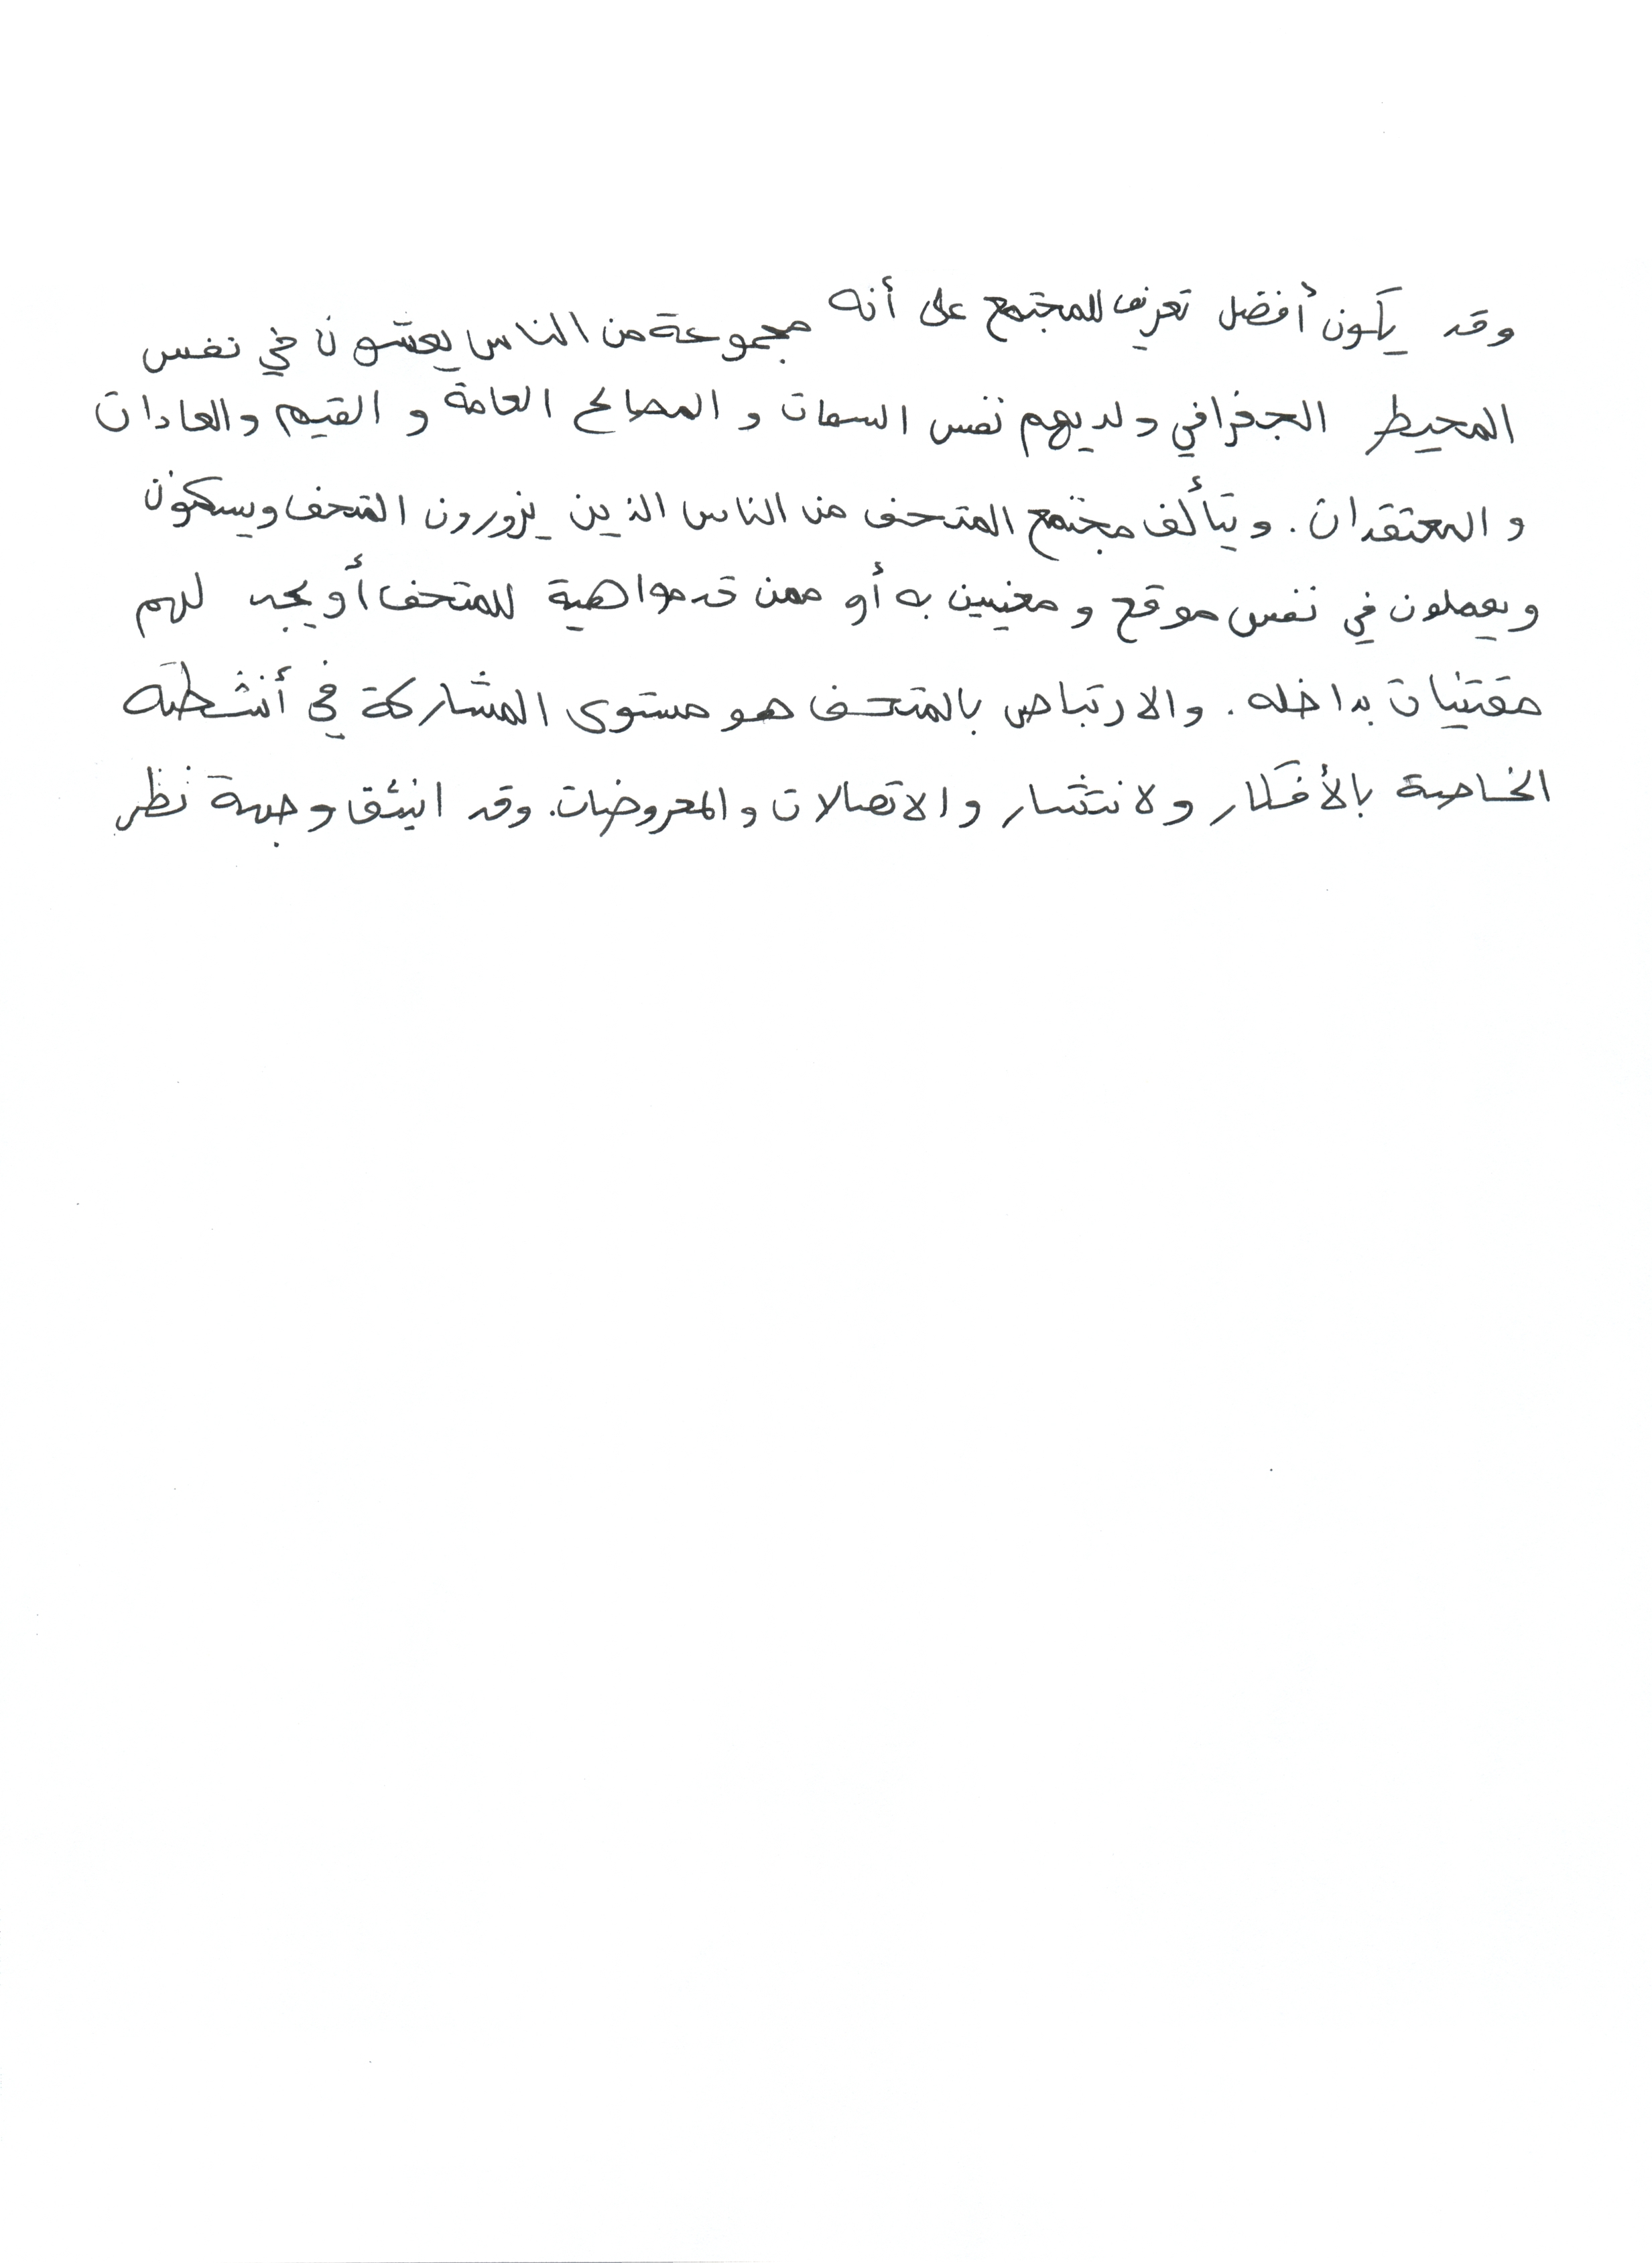 وقد يكون أفضل تعريف للمجتمع على أنه مجموعة من الناس يعشون في نفس
المحيط الجغرافي ولديهم نفس السمات و المصالح العامة و القيم والعادات
و المعتقدات. ويتألف مجتمع المتحف من الناس الذين يزورون المتحف ويسكون
ويعملون في نفس موقع و معنيين به أو ممن قدمواهبة للمتحف أو يجد لهم
مقتنيات بداخله. والارتباص بالمتحف هو مستوى المشاركة في أنشطته
الخاصة بالأفكار ولانتشار والاتصالات والمعروضات. وقد انبثق وجهة نظر